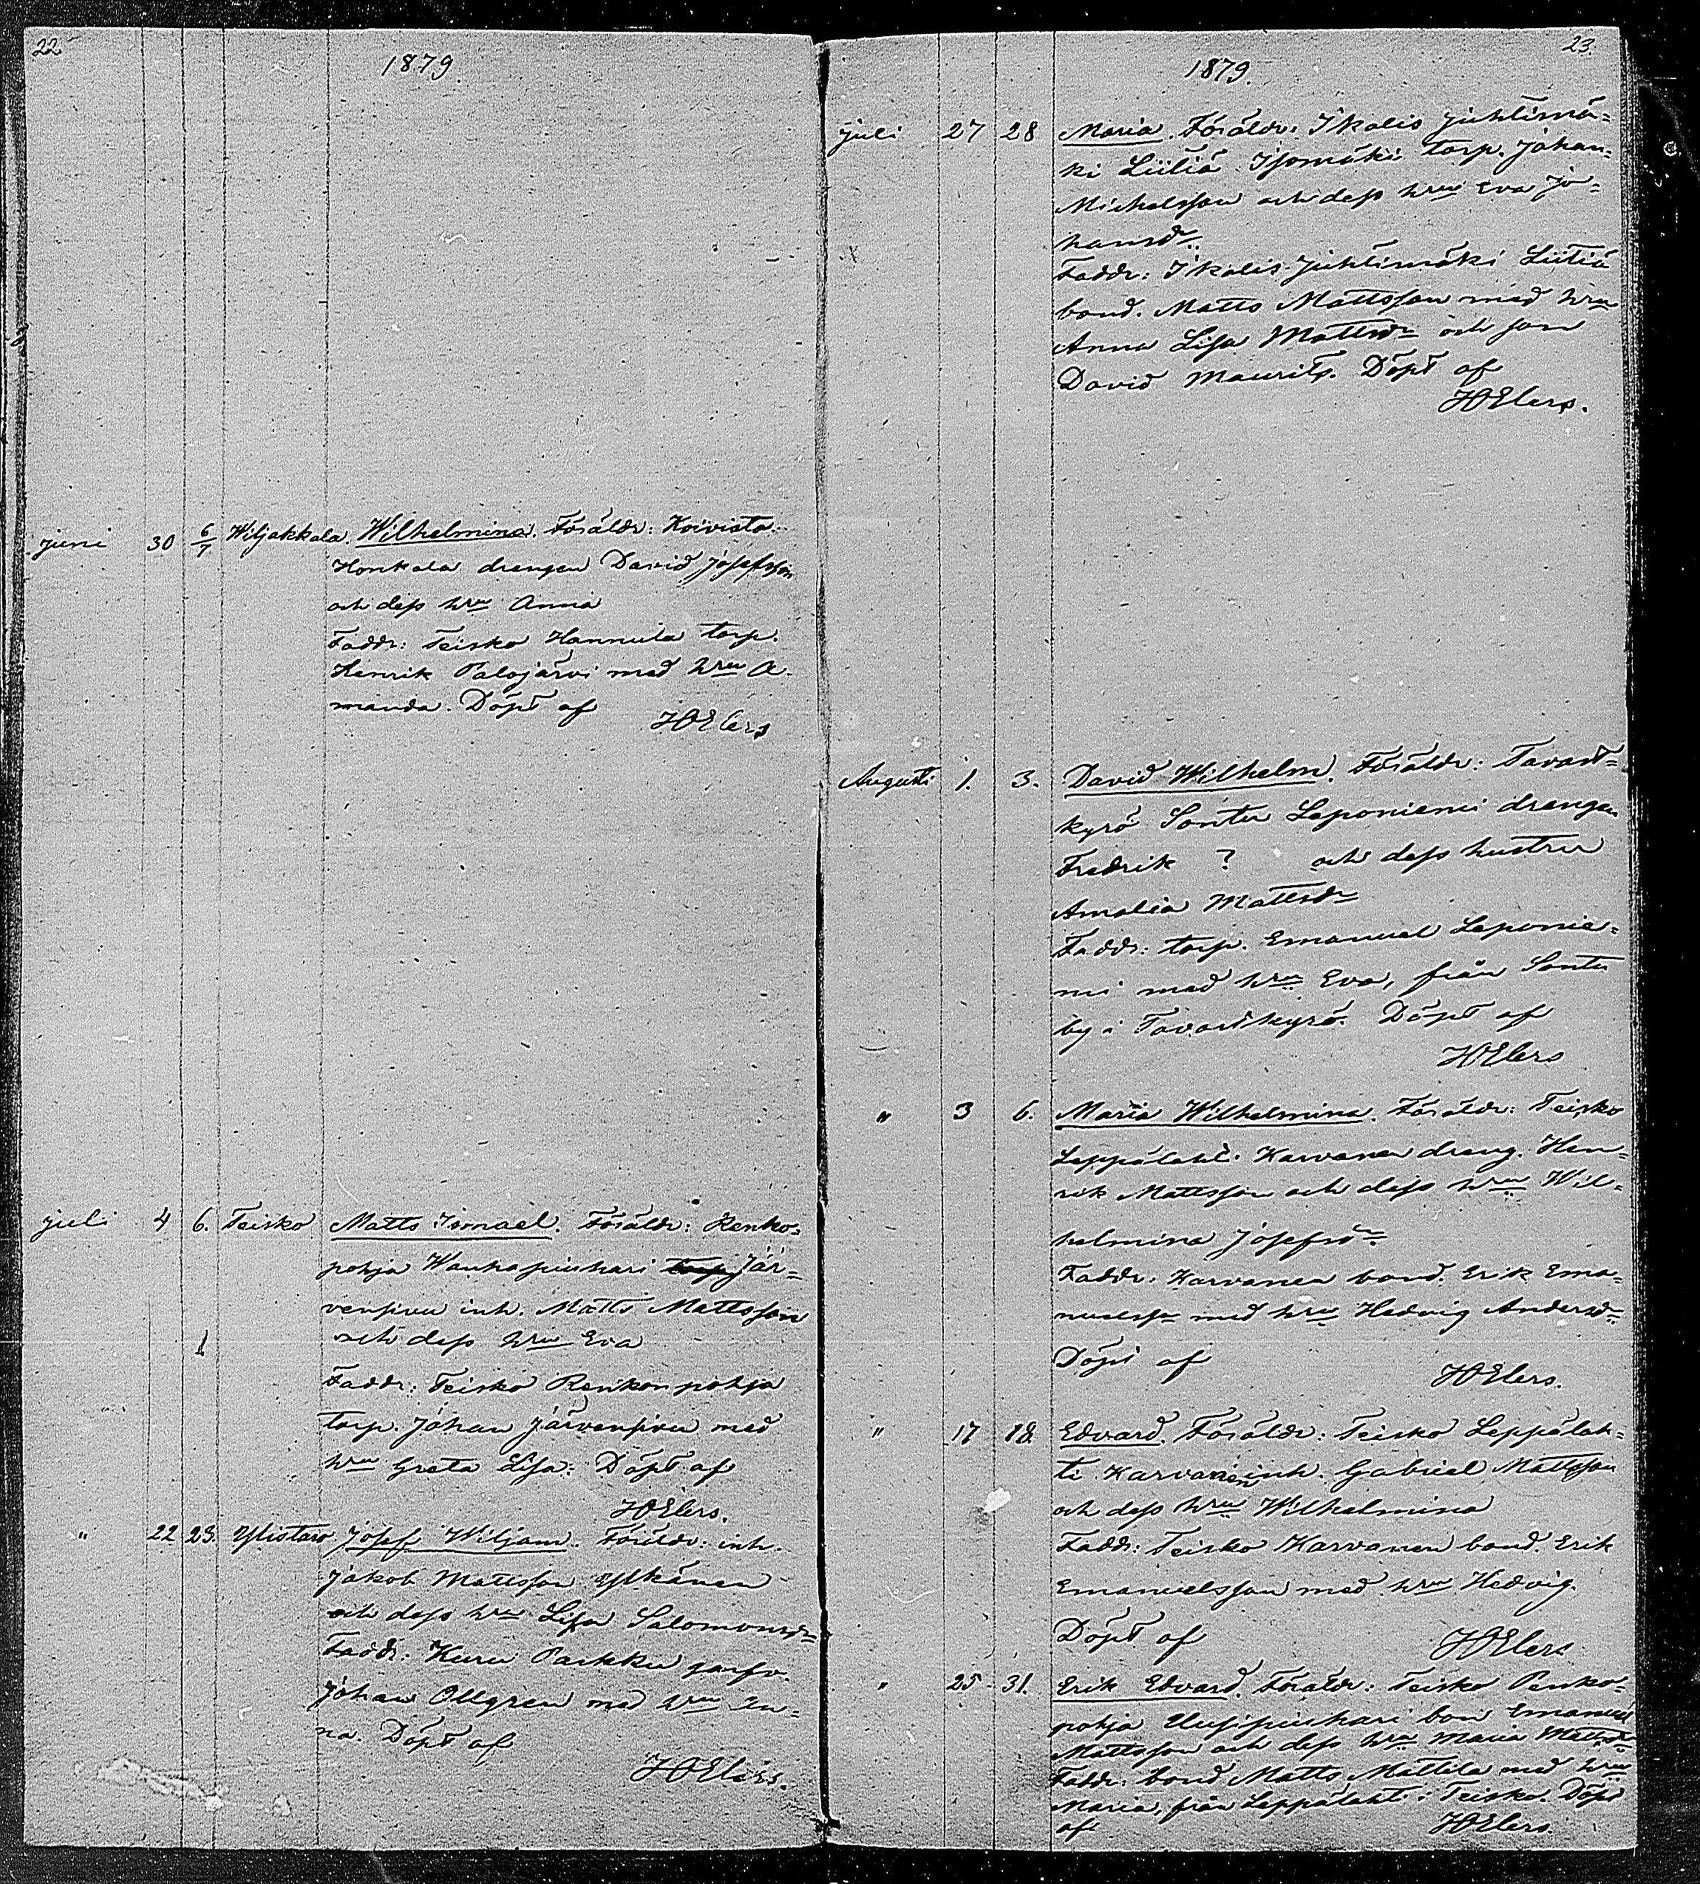 22
1879.
juni 30 6/7 Wiljakkala. Wilhelmina. Föräldr: Koivisto
Honkala drengen David Josefsson
och dess hru Anna
Faddr: Teisko Hannula torp.
Henrik Palojärvi med hru A-
manda. Döpt af
HOElers
juli 4 6. Teisko Matts Ismael. Föräldr: Renko-
pohja Wanhapiuhari torp Jär-
vensivu inh. Matts Mattsson
och dess hru Eva
Faddr: Teisko Renkonpohja
torp. Johan Järvensivu med
hru Greta Lisa. Döpt af
HOElers.
" 22 23. Ylistaro Josef Wiljam. Föräldr: inh.
Jakob Mattsson
och dess hru Lisa Salomonsdr
Faddr: Kuru Parkku
Johan Ollgren med hru An-
na. Döpt af
HOElers.
23.
1879.
juli 27 28 Maria. Föräldr: Ikalis Juhtimä-
ki Liitiä Isomäki torp. Johan
Michelsson och dess hru Eva Jo-
hansdr.
Faddr: Ikalis Juhtimäki Liitiä
bond. Matts Mattsson med hru
Anna Lisa Mattsdr och son
David Maurits. Döpt af
HOElers.
Augusti 1. 3. David Wilhelm. Föräldr: Tavast-
kyrö Sontu Leponiemi drengen
Fredrik ? och dess hustru
Amalia Mattsdr
Faddr: torp. Emanuel Leponie-
mi med hru Eva, från Sontu
by i Tavastkyrö. Döpt af
HOElers
" 3 6. Maria Wilhelmina. Föräldr: Teisko
Leppälaht. Karvanen dreng. Hen-
rik Mattsson och dess hru Wil-
helmina Josefsdr.
Faddr: Karvanen bond. Erik Ema-
nuelss. med hru Hedvig Andersdr.
Döpt af
HOElers.
" 17 18. Edvard. Föräldr: Teisko Leppälah-
ti Karvanen inh. Gabriel Mattsson
och dess hru Wilhelmina
Faddr: Teisko Karvanen bond. Erik
Emanuelsson med hru Hedvig.
Döpt af
HOElers
" 25 31. Erik Edvard. Föräldr: Teisko Renko-
pohja Uusipiuhari bon Emanuel
Mattsson och dess hru Maria Mattsdr
Faddr: bond Matts Mattila med hru
Maria, från Leppälahti i Teisko. Döpt
af
HOElers.